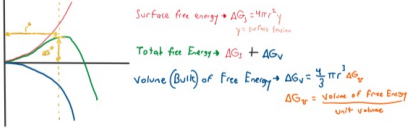 r*
ΔG*
Surface free energy → ΔG₁ = 4πr²γ
γ = surface tension
Total free Energy → ΔG₁ + ΔGv
Volume (Bulk) of Free Energy → ΔGv = 4/3 πr³ ΔGv
ΔGv = Volume of Free Energy / unit volume